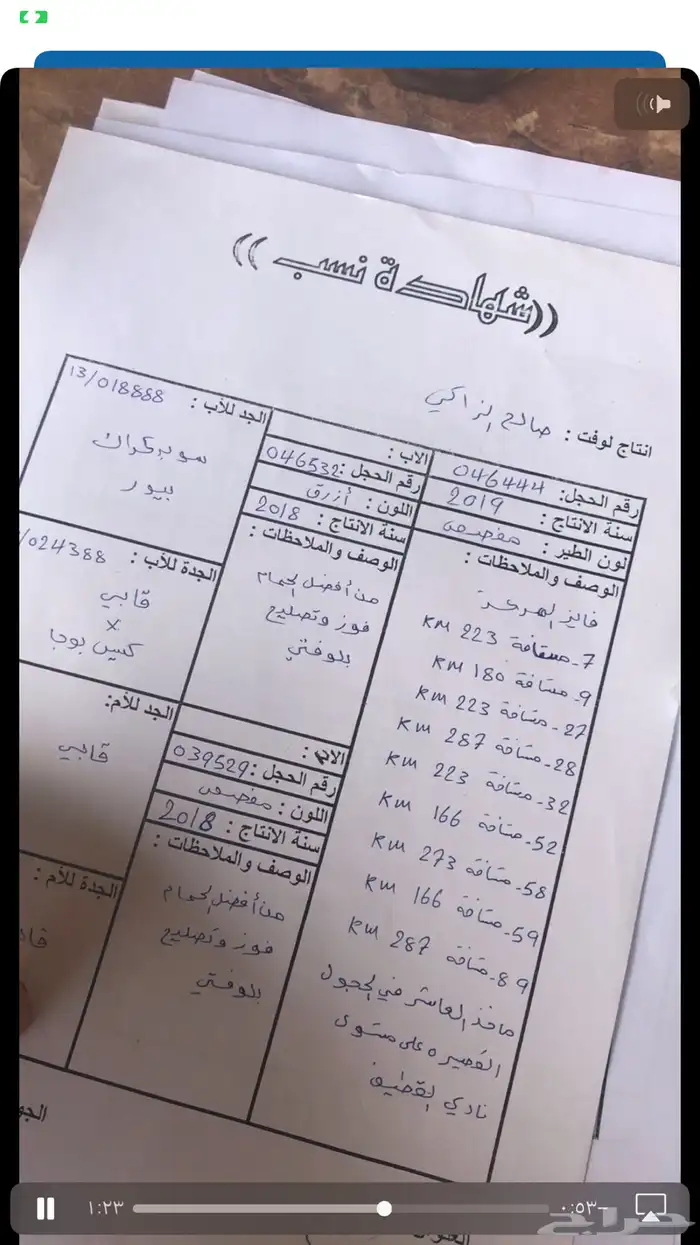 ((شهادة نسب))
انتاج لوفت : صالح الزاكي
رقم الحجل: 046444
سنة الانتاج : 2019
لون الطير : مفصص
الوصف والملاحظات :
فايز الهركز
7- مسافة 223 KM
9- مسافة 180 KM
27- مسافة 223 KM
28- مسافة 287 KM
32- مسافة 223 KM
52- مسافة 166 KM
58- مسافة 273 KM
59- مسافة 166 KM
89- مسافة 287 KM
ماخذ العاشر في الحجول
القصيره على مستوى
نادي القطيف
الاب :
رقم الحجل: 046532
اللون : أزرق
سنة الانتاج : 2018
الوصف والملاحظات :
من أفضل الحمام
فوز وتصليع
بلوفتي
الام :
رقم الحجل: 039529
اللون : مفصص
سنة الانتاج : 2018
الوصف والملاحظات :
من أفضل الحمام
فوز وتصليع
بلوفتي
الجد للأب : 13/018888
سوبركراك
بيور
الجدة للأب : /024388
قابي
x
كيس بوجا
الجد للأم:
قابي
الجدة للأم :
١:٢٣
-٠:٥٣
حراج